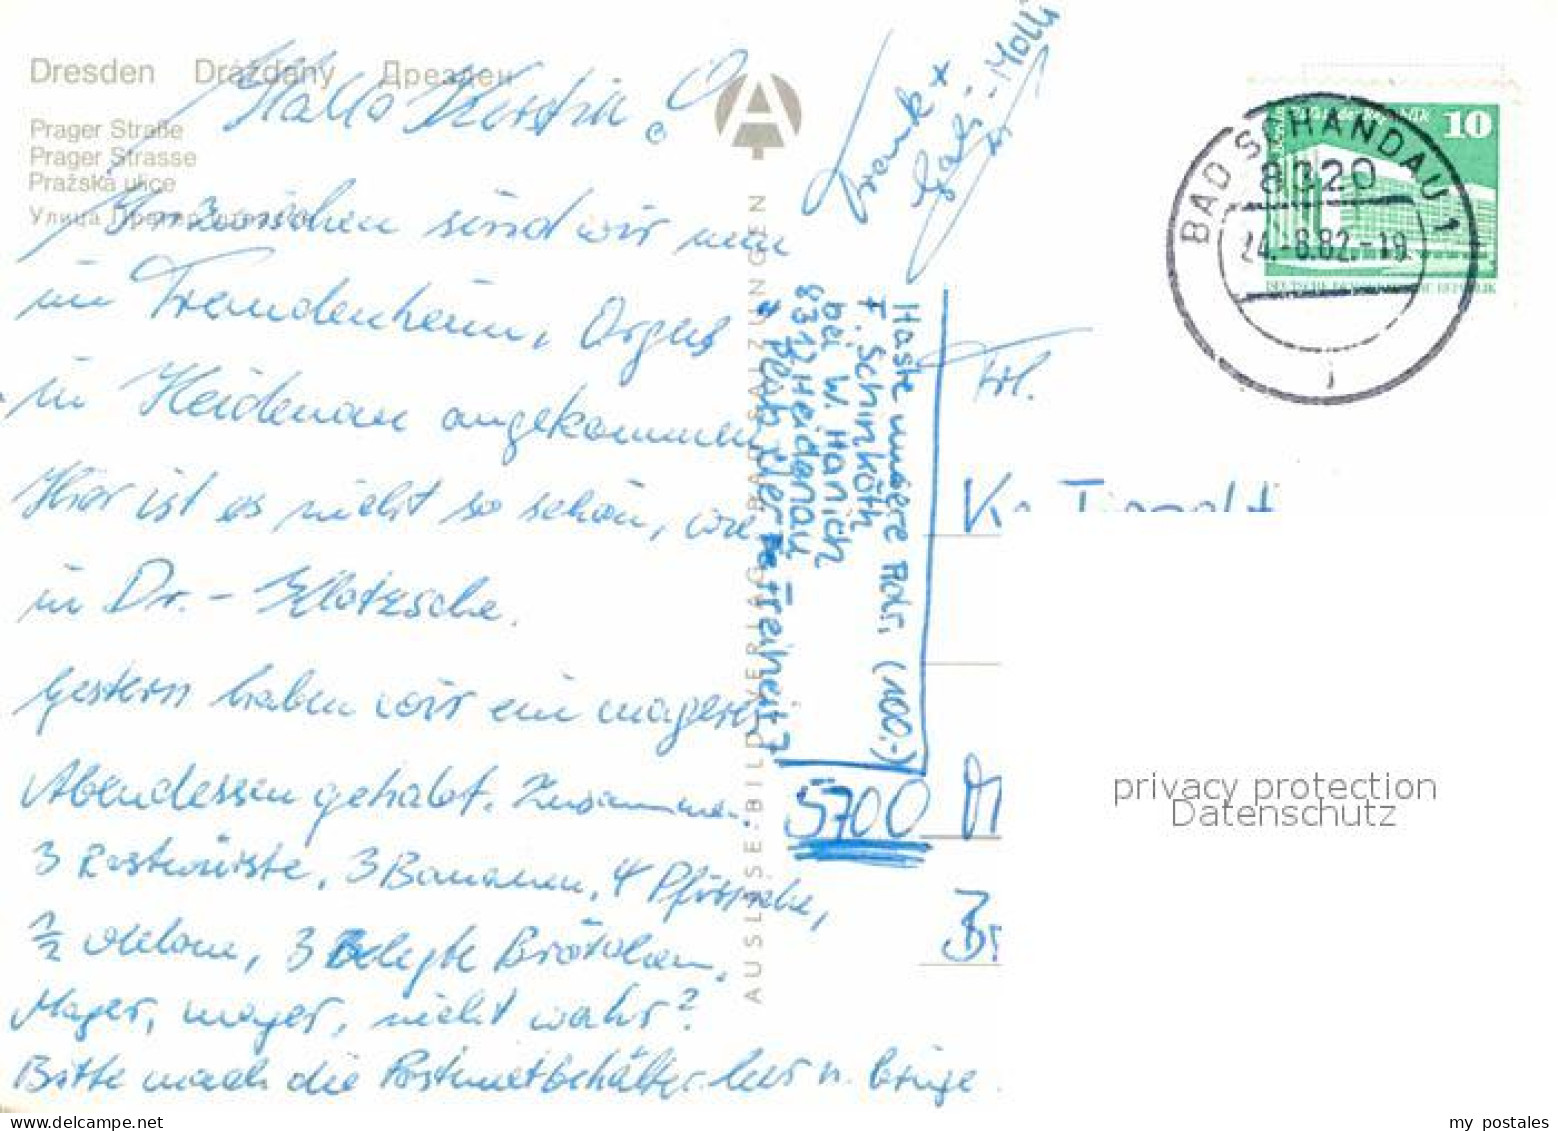 Dresden Drážďany Дрезден
Prager Straße
Prager Strasse
Pražská ulice
Улица Прагер штрассе
Hallo Kerstin!
Inzwischen sind wir nun
im Fremdenheim, Orgus
in Heidenau angekommen
Hier ist es nicht so schön, wie
in Dr. - Klotzsche.
Gestern haben wir ein mageres
Abendessen gehabt. Zusammen:
3 Rostwürste, 3 Bananen, 4 Pfirsiche,
1/2 Melone, 3 Belegte Brötchen.
Mager, mager, nicht wahr?
Bitte mach die leer u. bringe
AUSLESE-BILD-VERLAG BAD SALZUNGEN
Frank +
Gabi
Haste unsere Adr. (100.-)
F. Schinköth
bei W. Hanich
8312 Heidenau
Platz der Freiheit 7
Frl.
K. T
5700 M
BAD SCHANDAU 1
8320
24.-6.82.-19
10
DEUTSCHE DEMOKRATISCHE REPUBLIK
privacy protection
Datenschutz
my postales